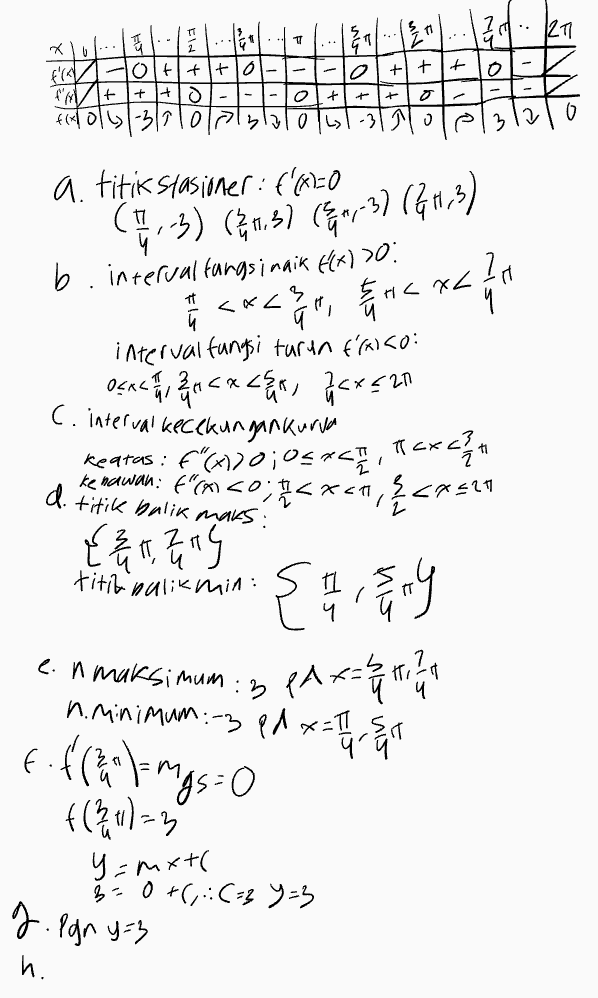 x | 0 | ... | π/4 | ... | π/2 | ... | 3/4 π | ... | π | ... | 5/4 π | ... | 3/2 π | ... | 7/4 π | ... | 2π
f'(x) | / | - | 0 | + | + | + | 0 | - | - | - | 0 | + | + | + | 0 | - | /
f''(x) | / | + | + | + | 0 | - | - | - | 0 | + | + | + | 0 | - | - | - | /
f(x) | 0 | ↳ | -3 | ↗ | 0 | ↱ | 3 | ↴ | 0 | ↳ | -3 | ↗ | 0 | ↱ | 3 | ↴ | 0
a. titik stasioner : f'(x)=0
(π/4, -3) (3/4 π, 3) (5/4 π, -3) (7/4 π, 3)
b. interval fungsi naik f'(x) >0:
π/4 < x < 3/4 π, 5/4 π < x < 7/4 π
interval fungsi turun f'(x)<0:
0≤x<π/4, 3/4 π < x < 5/4 π, 7/4 < x ≤ 2π
C. interval kecekungan kurva
keatas : f''(x)>0 ; 0 ≤ x < π/2, π < x < 3/2 π
kebawah: f''(x) <0 ; π/2 < x < π, 3/2 < x ≤ 2π
d. titik balik maks :
{3/4 π, 7/4 π}
titik balik min : {π/4, 5/4 π}
e. n maksimum : 3 pd x = 3/4 π, 7/4 π
n. minimum : -3 pd x = π/4, 5/4 π
f. f'(3/4 π) = m gs = 0
f(3/4 π) = 3
y = mx+c
3 = 0 + c, ∴ c=3 y=3
g. Pgn y=3
h.